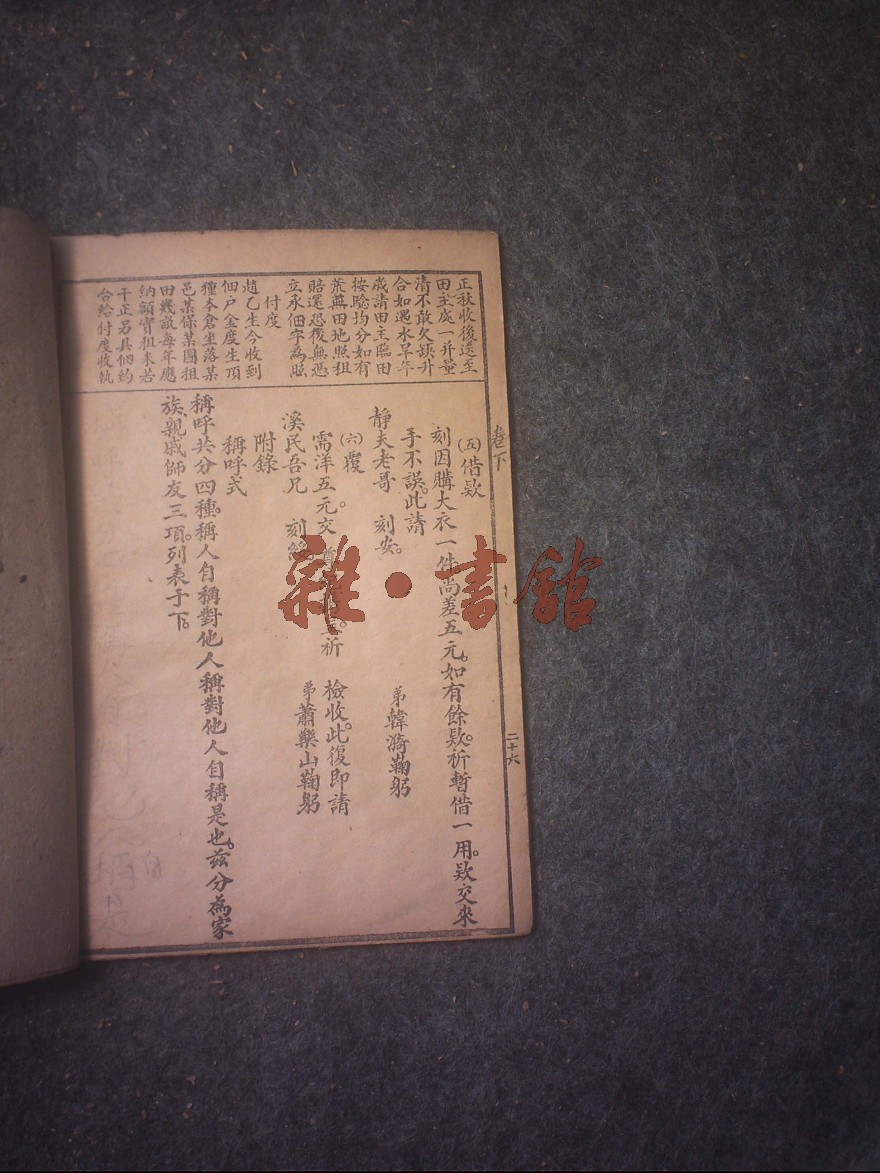 卷下
二十六
正秋收後送至
田主處一并量
清不敢欠缺升
合如遇水旱年
歲請田主臨田
按驗均分如有
荒蕪田地照租
賠還恐後無憑
立承佃字為照
付度
趙乙生今收到
佃户金度生頂
種本倉坐落某
邑某保某圖租
田幾畝每年應
納額實租米若
干正另具佃約
合給付度收執
(五)借欵
刻因購大衣一件尚差五元。如有餘欵。祈暫借一用。欵交來
手不誤。此請
靜夫老哥 刻安。 弟韓漪鞠躬
(六)覆
需洋五元。交 祈 檢收。此復即請
溪民吾兄 刻 弟蕭樂山鞠躬
附錄
稱呼式
稱呼共分四種。稱人自稱對他人稱對他人自稱是也。茲分為家
族、親戚師友三項。列表于下。
雜·書館